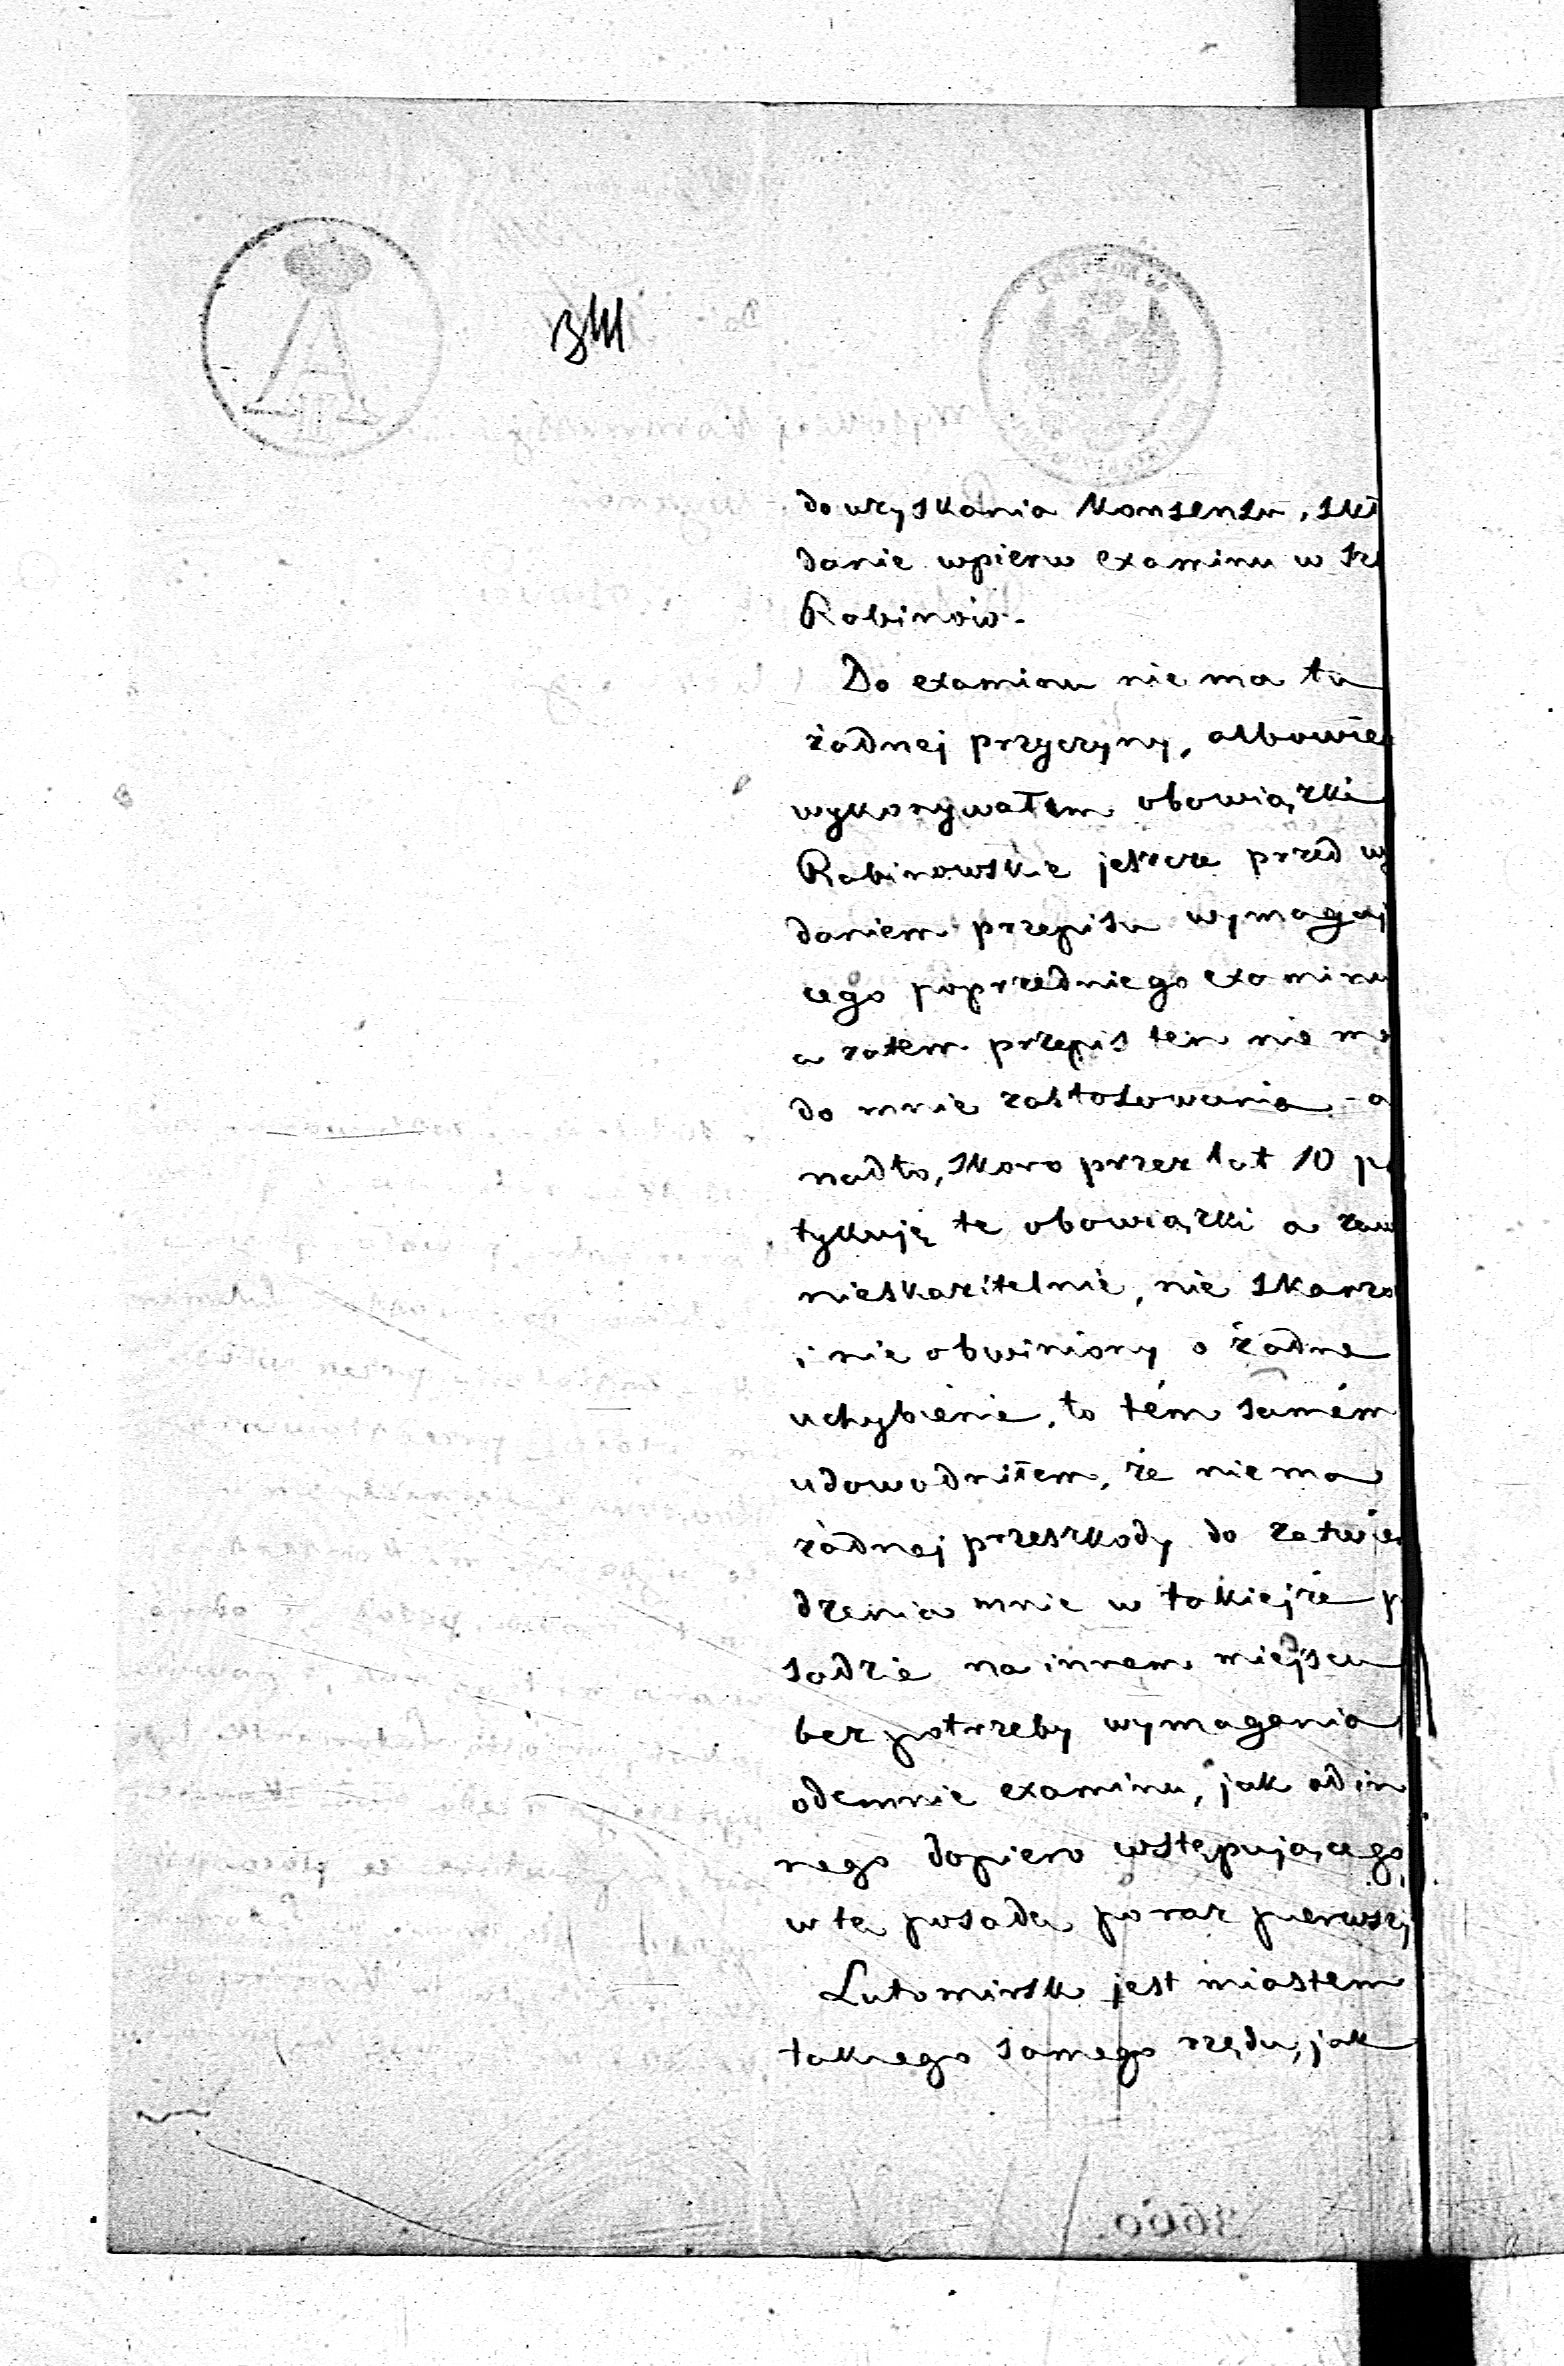 do uzyskania Konsensu, skł
danie wpierw examinu w Sz
Rabinów.
Do examinu niema tu
żadnej przyczyny, albowie
wykonywałem obowiązki
Rabinowskie jeszcze przed wy
daniem przepisu wymagaj
cego poprzedniego examinu
a zatem przepis ten nie ma
do mnie zastosowania – a
nadto, skoro przez lat 10 p
tykuję te obowiązki a zaw
nieskazitelnie, nie skarżo
i nie obwiniony o żadne
uchybienie, to tém samém
udowodniłem, że niema
żadnej przeszkody do zatwier
dzenia mnie w takiejże p
sadzie na innem miejscu
bez potrzeby wymagania
odemnie examinu, jak od in
nego dopiero wstępującego
w tę posadę po raz pierwszy
Lutomirsk jest miastem
takiego samego rzędu, jak